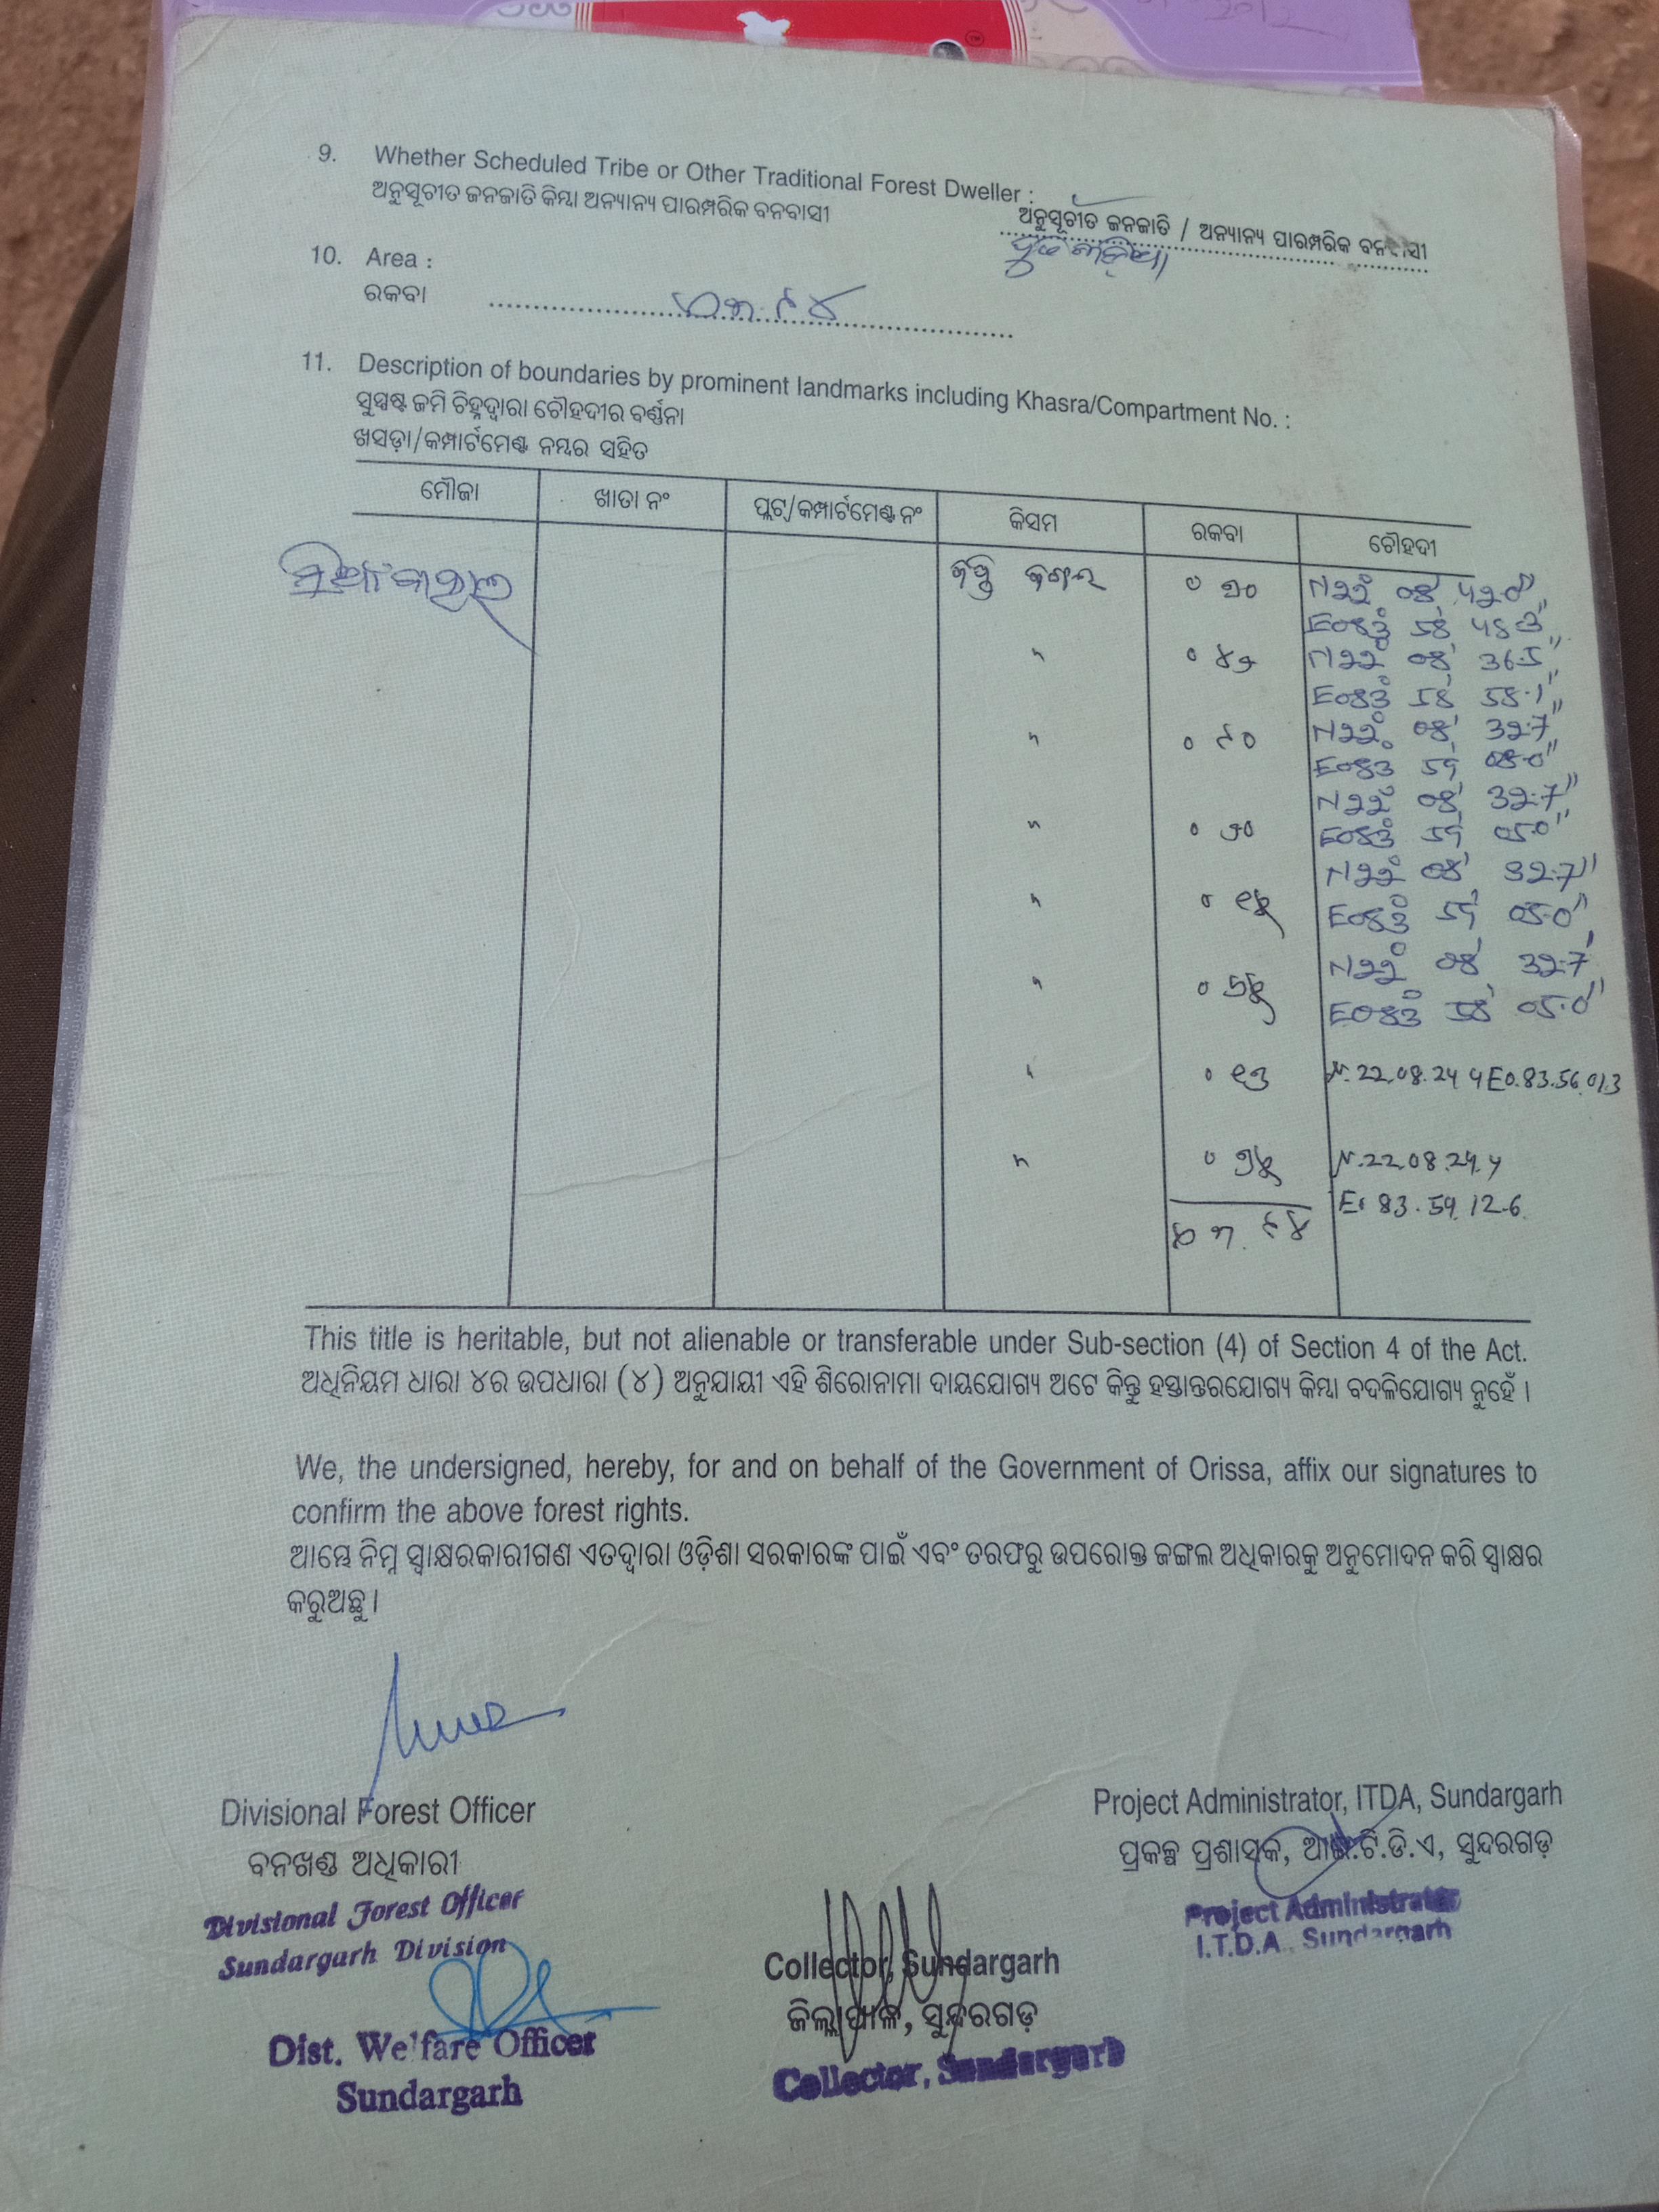 9. Whether Scheduled Tribe or Other Traditional Forest Dweller :
ଅନୁସୂଚୀତ ଜନଜାତି କିମ୍ବା ଅନ୍ୟାନ୍ୟ ପାରମ୍ପରିକ ବନବାସୀ
ଅନୁସୂଚୀତ ଜନଜାତି / ଅନ୍ୟାନ୍ୟ ପାରମ୍ପରିକ ବନବାସୀ
10. Area :
ରକବା
11. Description of boundaries by prominent landmarks including Khasra/Compartment No. :
ସୁସ୍ପଷ୍ଟ ଜମି ଚିହ୍ନଦ୍ୱାରା ଚୌହଦୀର ବର୍ଣ୍ଣନା
ଖସଡ଼ା/କମ୍ପାର୍ଟମେଣ୍ଟ ନମ୍ବର ସହିତ
ମୌଜା ଖାତା ନଂ ପ୍ଲଟ୍/କମ୍ପାର୍ଟମେଣ୍ଟ ନଂ କିସମ ରକବା ଚୌହଦୀ
N22° 08' 42.0"
E083° 58' 48.3"
N22° 08' 36.5"
E083° 58' 58.1"
" ୦ ୯୦ N22° 08' 32.7"
E083 59' 05.0"
" ୦ ୬୦ N22° 08' 32.7"
E083° 59' 05.0"
" ୦ ୧୫ N22° 08' 32.7"
E083° 59' 05.0"
N22° 08' 32.7"
E083° 58' 05.0"
" ୦ ୧୩ N.22.08.24 4 E0.83.56.01.3
N.22.08.24.4
E0 83.59.12.6
This title is heritable, but not alienable or transferable under Sub-section (4) of Section 4 of the Act.
ଅଧିନିୟମ ଧାରା ୪ର ଉପଧାରା (୪) ଅନୁଯାୟୀ ଏହି ଶିରୋନାମା ଦାୟଯୋଗ୍ୟ ଅଟେ କିନ୍ତୁ ହସ୍ତାନ୍ତରଯୋଗ୍ୟ କିମ୍ବା ବଦଳିଯୋଗ୍ୟ ନୁହେଁ ।
We, the undersigned, hereby, for and on behalf of the Government of Orissa, affix our signatures to
confirm the above forest rights.
ଆମ୍ଭେ ନିମ୍ନ ସ୍ୱାକ୍ଷରକାରୀଗଣ ଏତଦ୍ୱାରା ଓଡ଼ିଶା ସରକାରଙ୍କ ପାଇଁ ଏବଂ ତରଫରୁ ଉପରୋକ୍ତ ଜଙ୍ଗଲ ଅଧିକାରକୁ ଅନୁମୋଦନ କରି ସ୍ୱାକ୍ଷର
କରୁଅଛୁ ।
Divisional Forest Officer
ବନଖଣ୍ଡ ଅଧିକାରୀ
Divisional Forest Officer
Sundargarh Division
Dist. Welfare Officer
Sundargarh
Collector, Sundargarh
ଜିଲ୍ଲାପାଳ, ସୁନ୍ଦରଗଡ଼
Collector, Sundargarh
Project Administrator, ITDA, Sundargarh
ପ୍ରକଳ୍ପ ପ୍ରଶାସକ, ଆଇ.ଟି.ଡି.ଏ, ସୁନ୍ଦରଗଡ଼
Project Administrator
I.T.D.A., Sundargarh